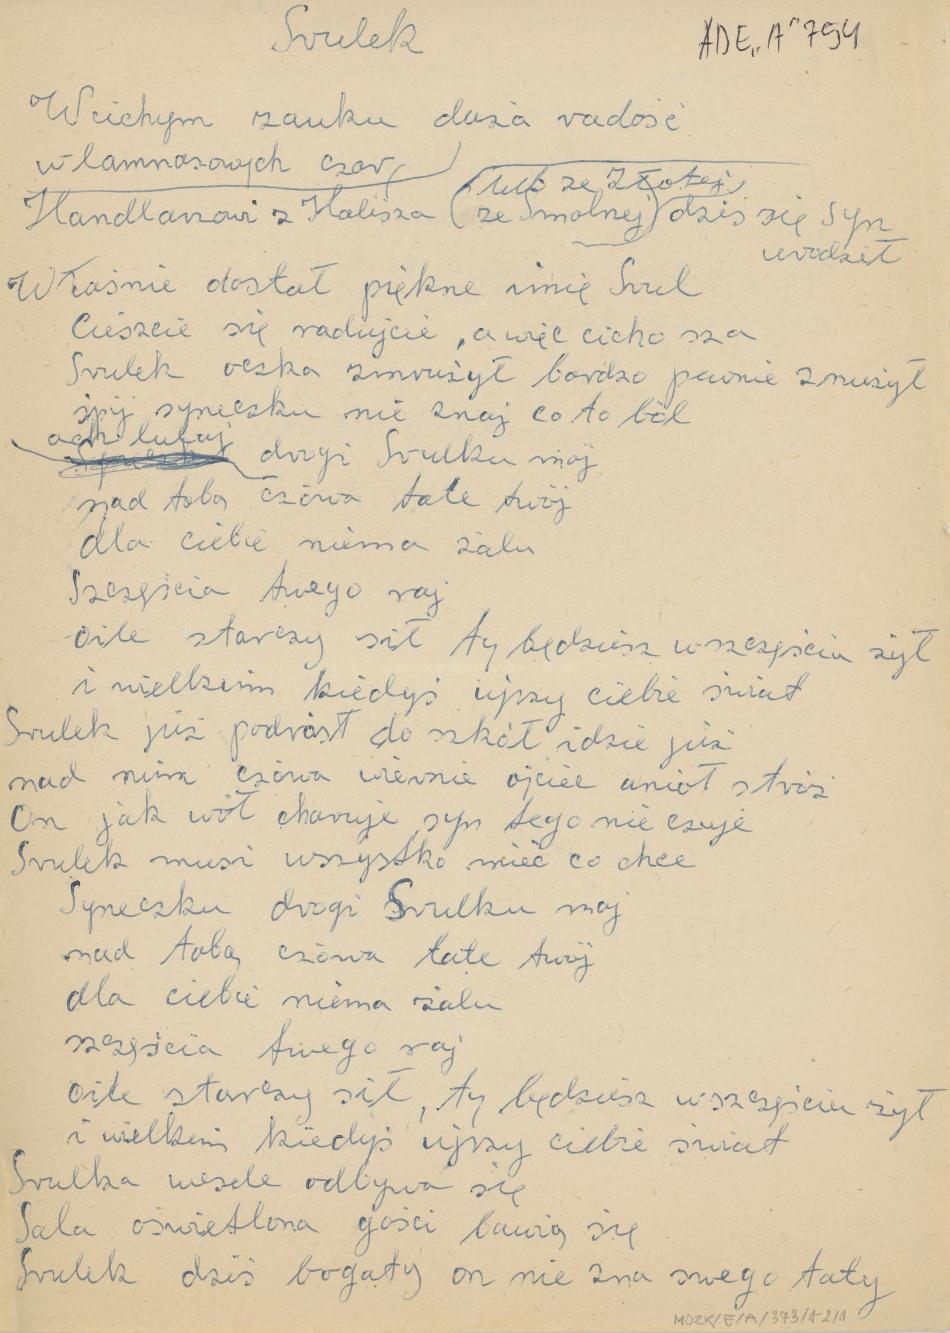 Srulek
ADE "A" 794
W cichym zauku duża radość
w lamnasowych czar
(lub ze Złotej)
Handlarzowi z Kalisza (ze Smolnej) dziś się syn
urodził
Właśnie dostał piękne imię Srul
Cieszcie się radujcie, a więc cicho sza
Srulek oczka zmrużył bardzo pewnie znużył
śpij syneczku nie znaj co to ból
ach lulaj
drogi Srulku mój
nad tobą czówa tate twój
dla ciebie niema żalu
Szczęścia twego raj
oile starczy sił ty będziesz w szczęściu żył
i wielkim kiedyś ujrzy ciebie świat
Srulek już podrósł do szkół idzie już
nad nim czówa wiernie ojciec anioł stróż
On jak wół charuje syn tego nie czuje
Srulek musi wszystko mieć co chce
Syneczku drogi Srulku moj
nad tobą czówa tate twój
dla ciebie niema żalu
szczęścia twego raj
oile starczy sił, ty będziesz w szczęściu żył
i wielkim kiedyś ujrzy ciebie świat
Srulka wesele odbywa się
Sala oświetlona gości bawią się
Srulek dziś bogaty on nie zna swego taty
MDZK/E/A/373/1-2/1